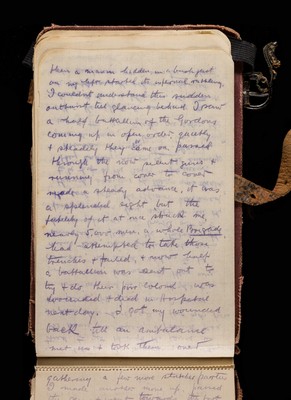 then a maxim hidden in a bush just
on my left started its infernal rattling
I couldn't understand this sudden
until glancing behind I saw
a half battalion of the Gordons
coming up in open order quickly
& steadily they came on passed
through the now silent guns &
running from cover to cover
made a steady advance, it was
a splendid sight but the
of it at once struck me,
nearly 5000 men, a whole Brigade,
had attempted to take these
trenches & failed, & now half
a battalion was sent out to
try & do their poor colonel was
wounded & died in Hospital
next day. I got my wounded
back till an ambulance
met us & took them over
gathering a few more